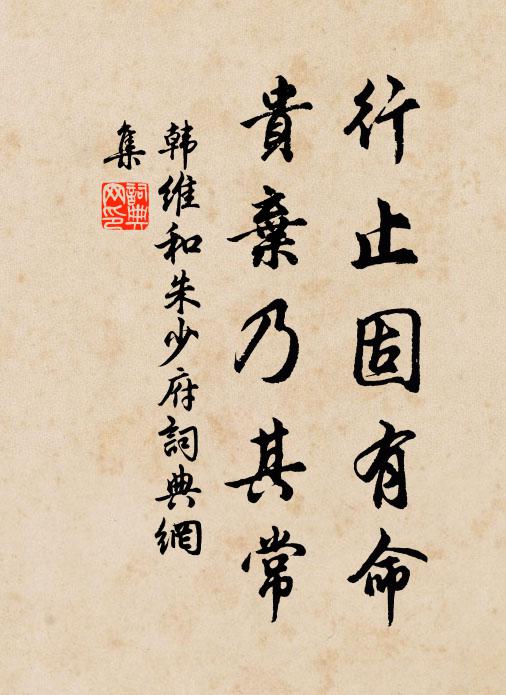 行止固有命
貴棄乃其常
韩維和朱少府詞典網
集
詞典
网印